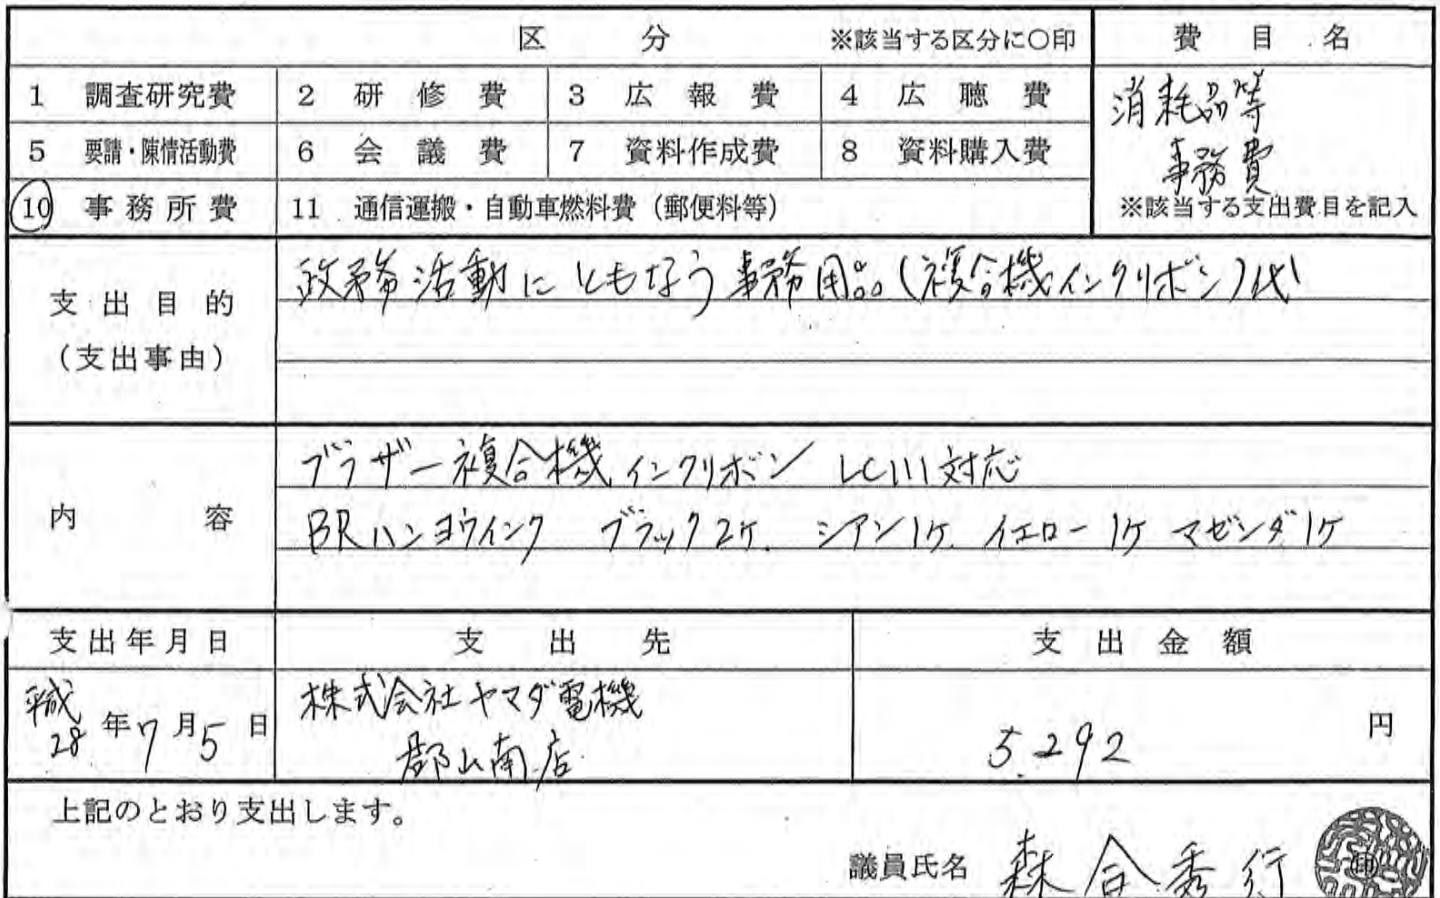 区 分 ※該当する区分に〇印 費目名
1 調査研究費 2 研修費 3 広報費 4 広聴費
消耗品等
5 要請・陳情活動費 6 会議費 7 資料作成費 8 資料購入費
事務費
10 事務所費 11 通信運搬・自動車燃料費（郵便料等） ※該当する支出費目を記入
支出目的
（支出事由）
政務活動にともなう事務用品(複合機インクリボン)代
内容
ブラザー複合機インクリボン LC111対応
BRハンヨウインク ブラック2ケ. シアン1ケ. イエロー1ケ マゼンダ1ケ
支出年月日 支出先 支出金額
平成28年7月5日 株式会社ヤマダ電機 5.292 円
郡山南店
上記のとおり支出します。
議員氏名 森合秀行 印